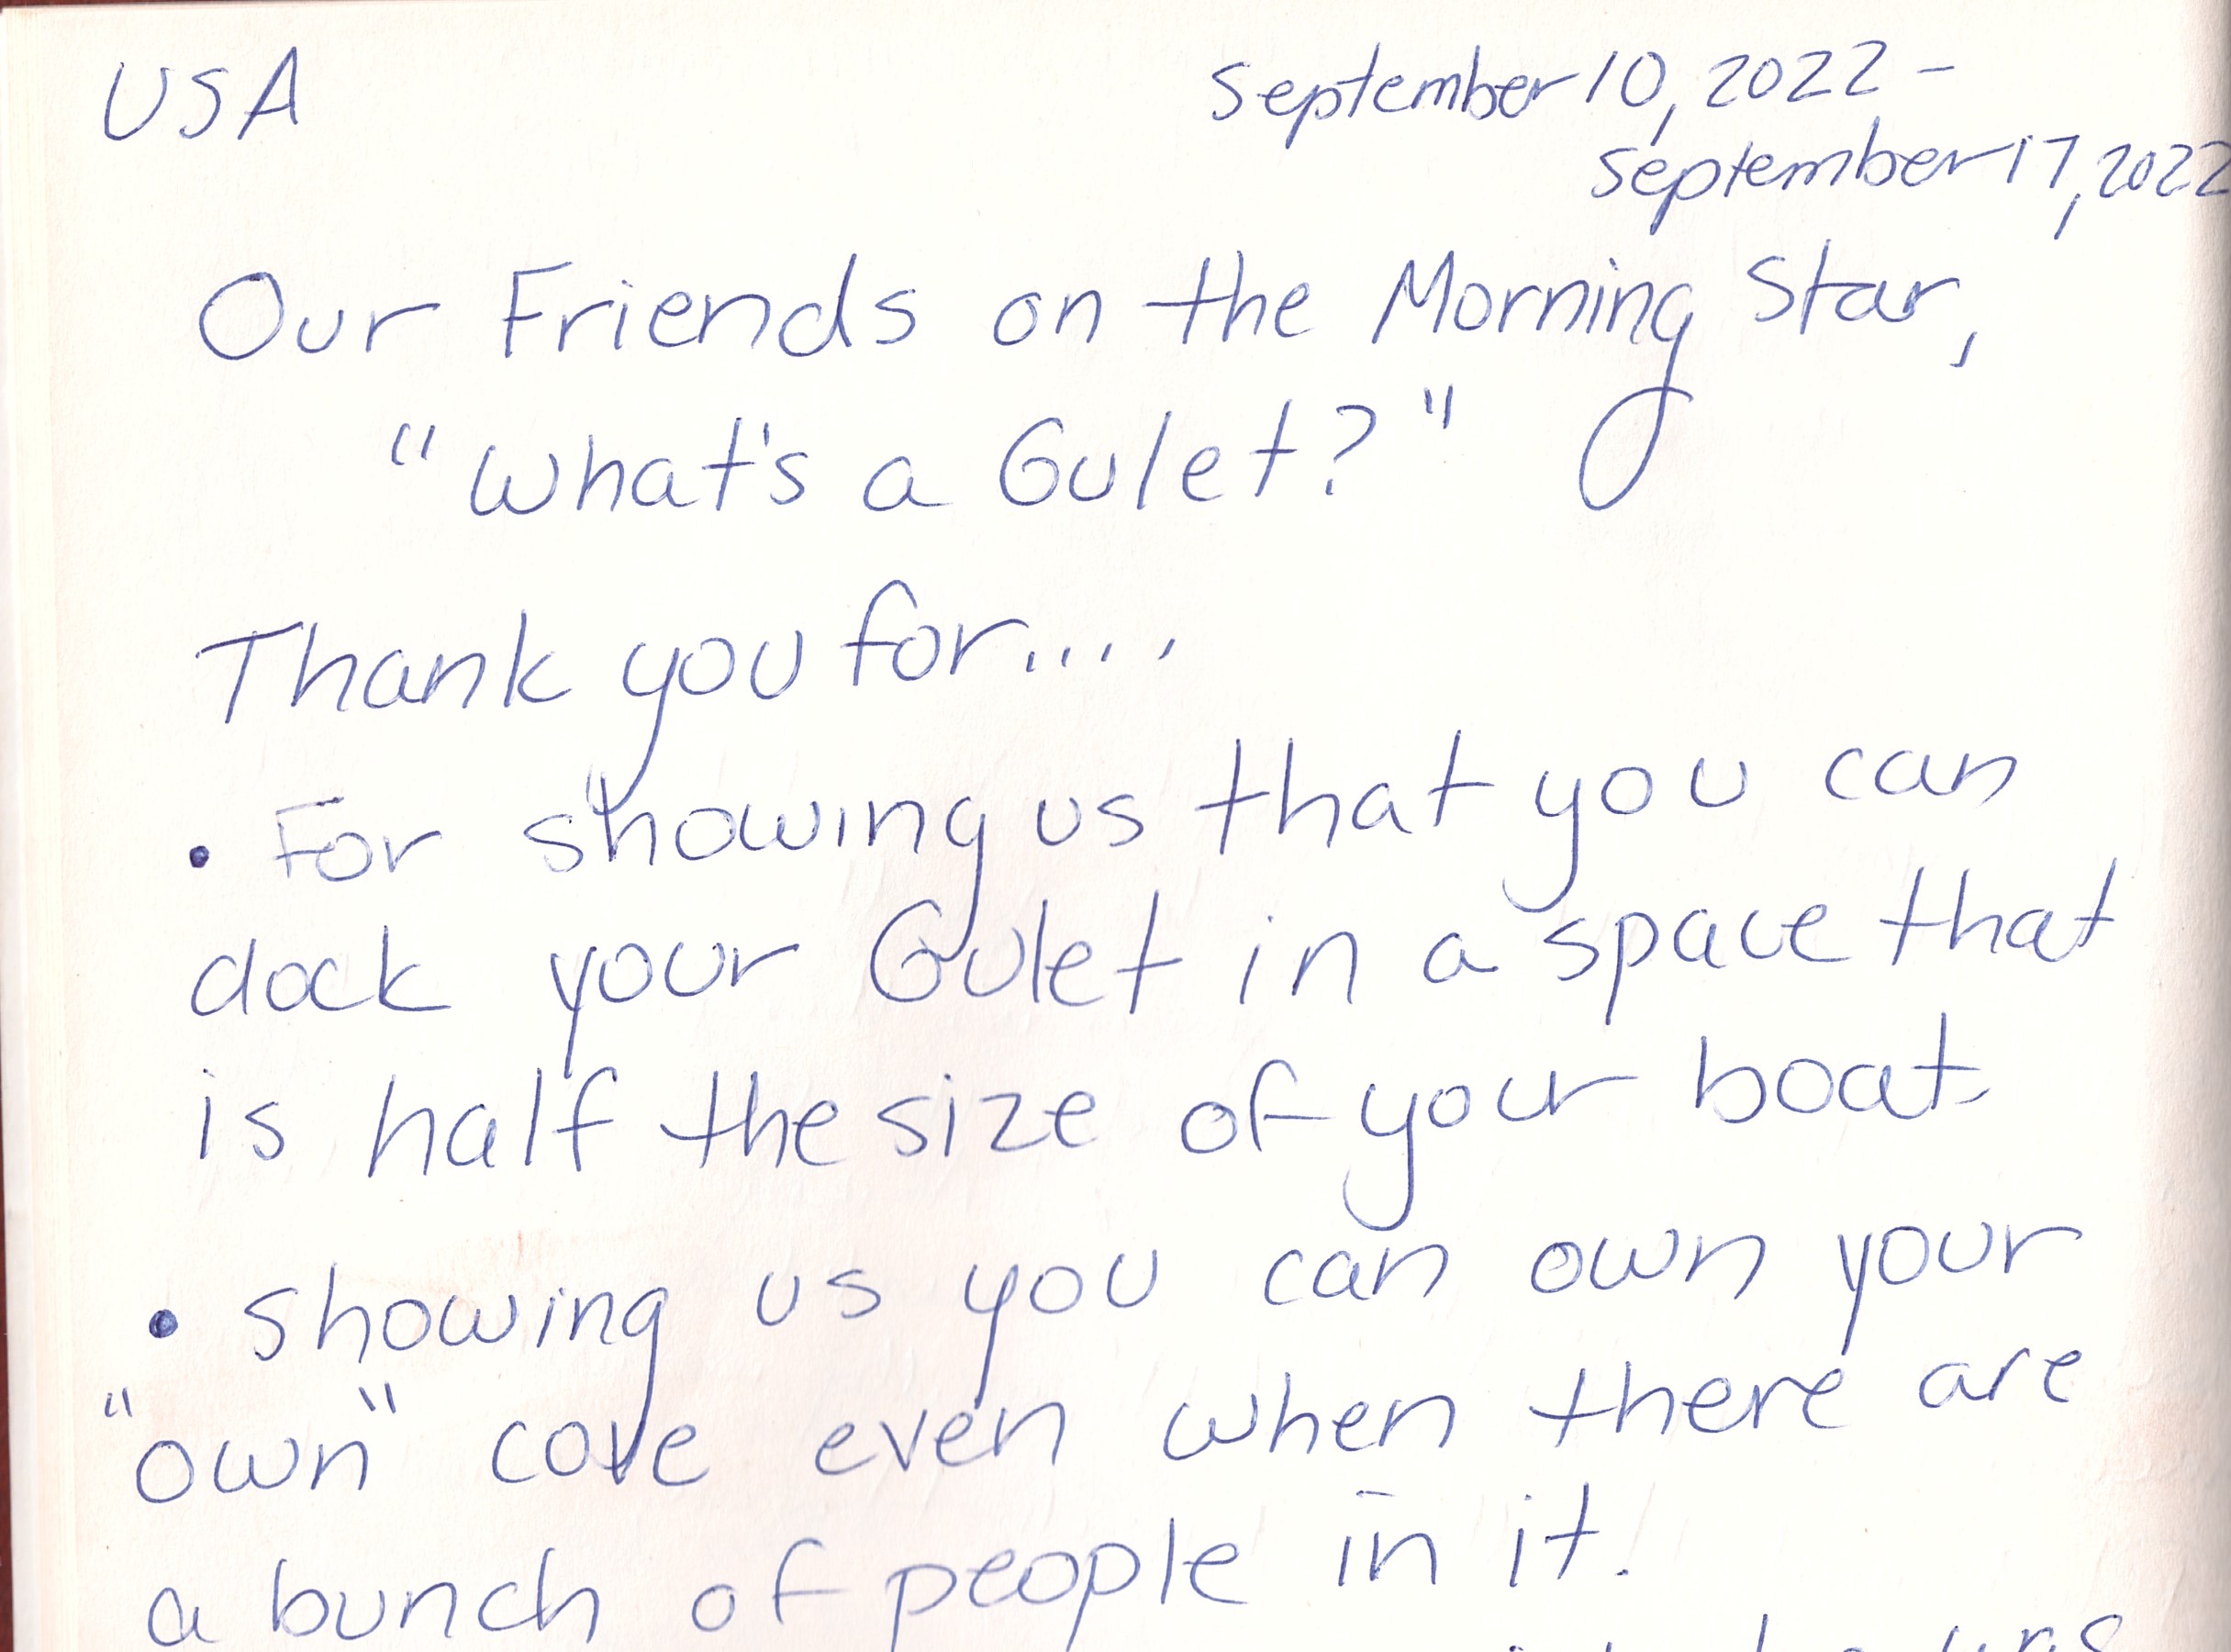 USA
September 10, 2022 -
September 17, 2022
Our Friends on the Morning Star,
"What's a Gulet?"
Thank you for....
• For showing us that you can
dock your Gulet in a space that
is half the size of your boat
• showing us you can own your
"own" cove even when there are
a bunch of people in it.